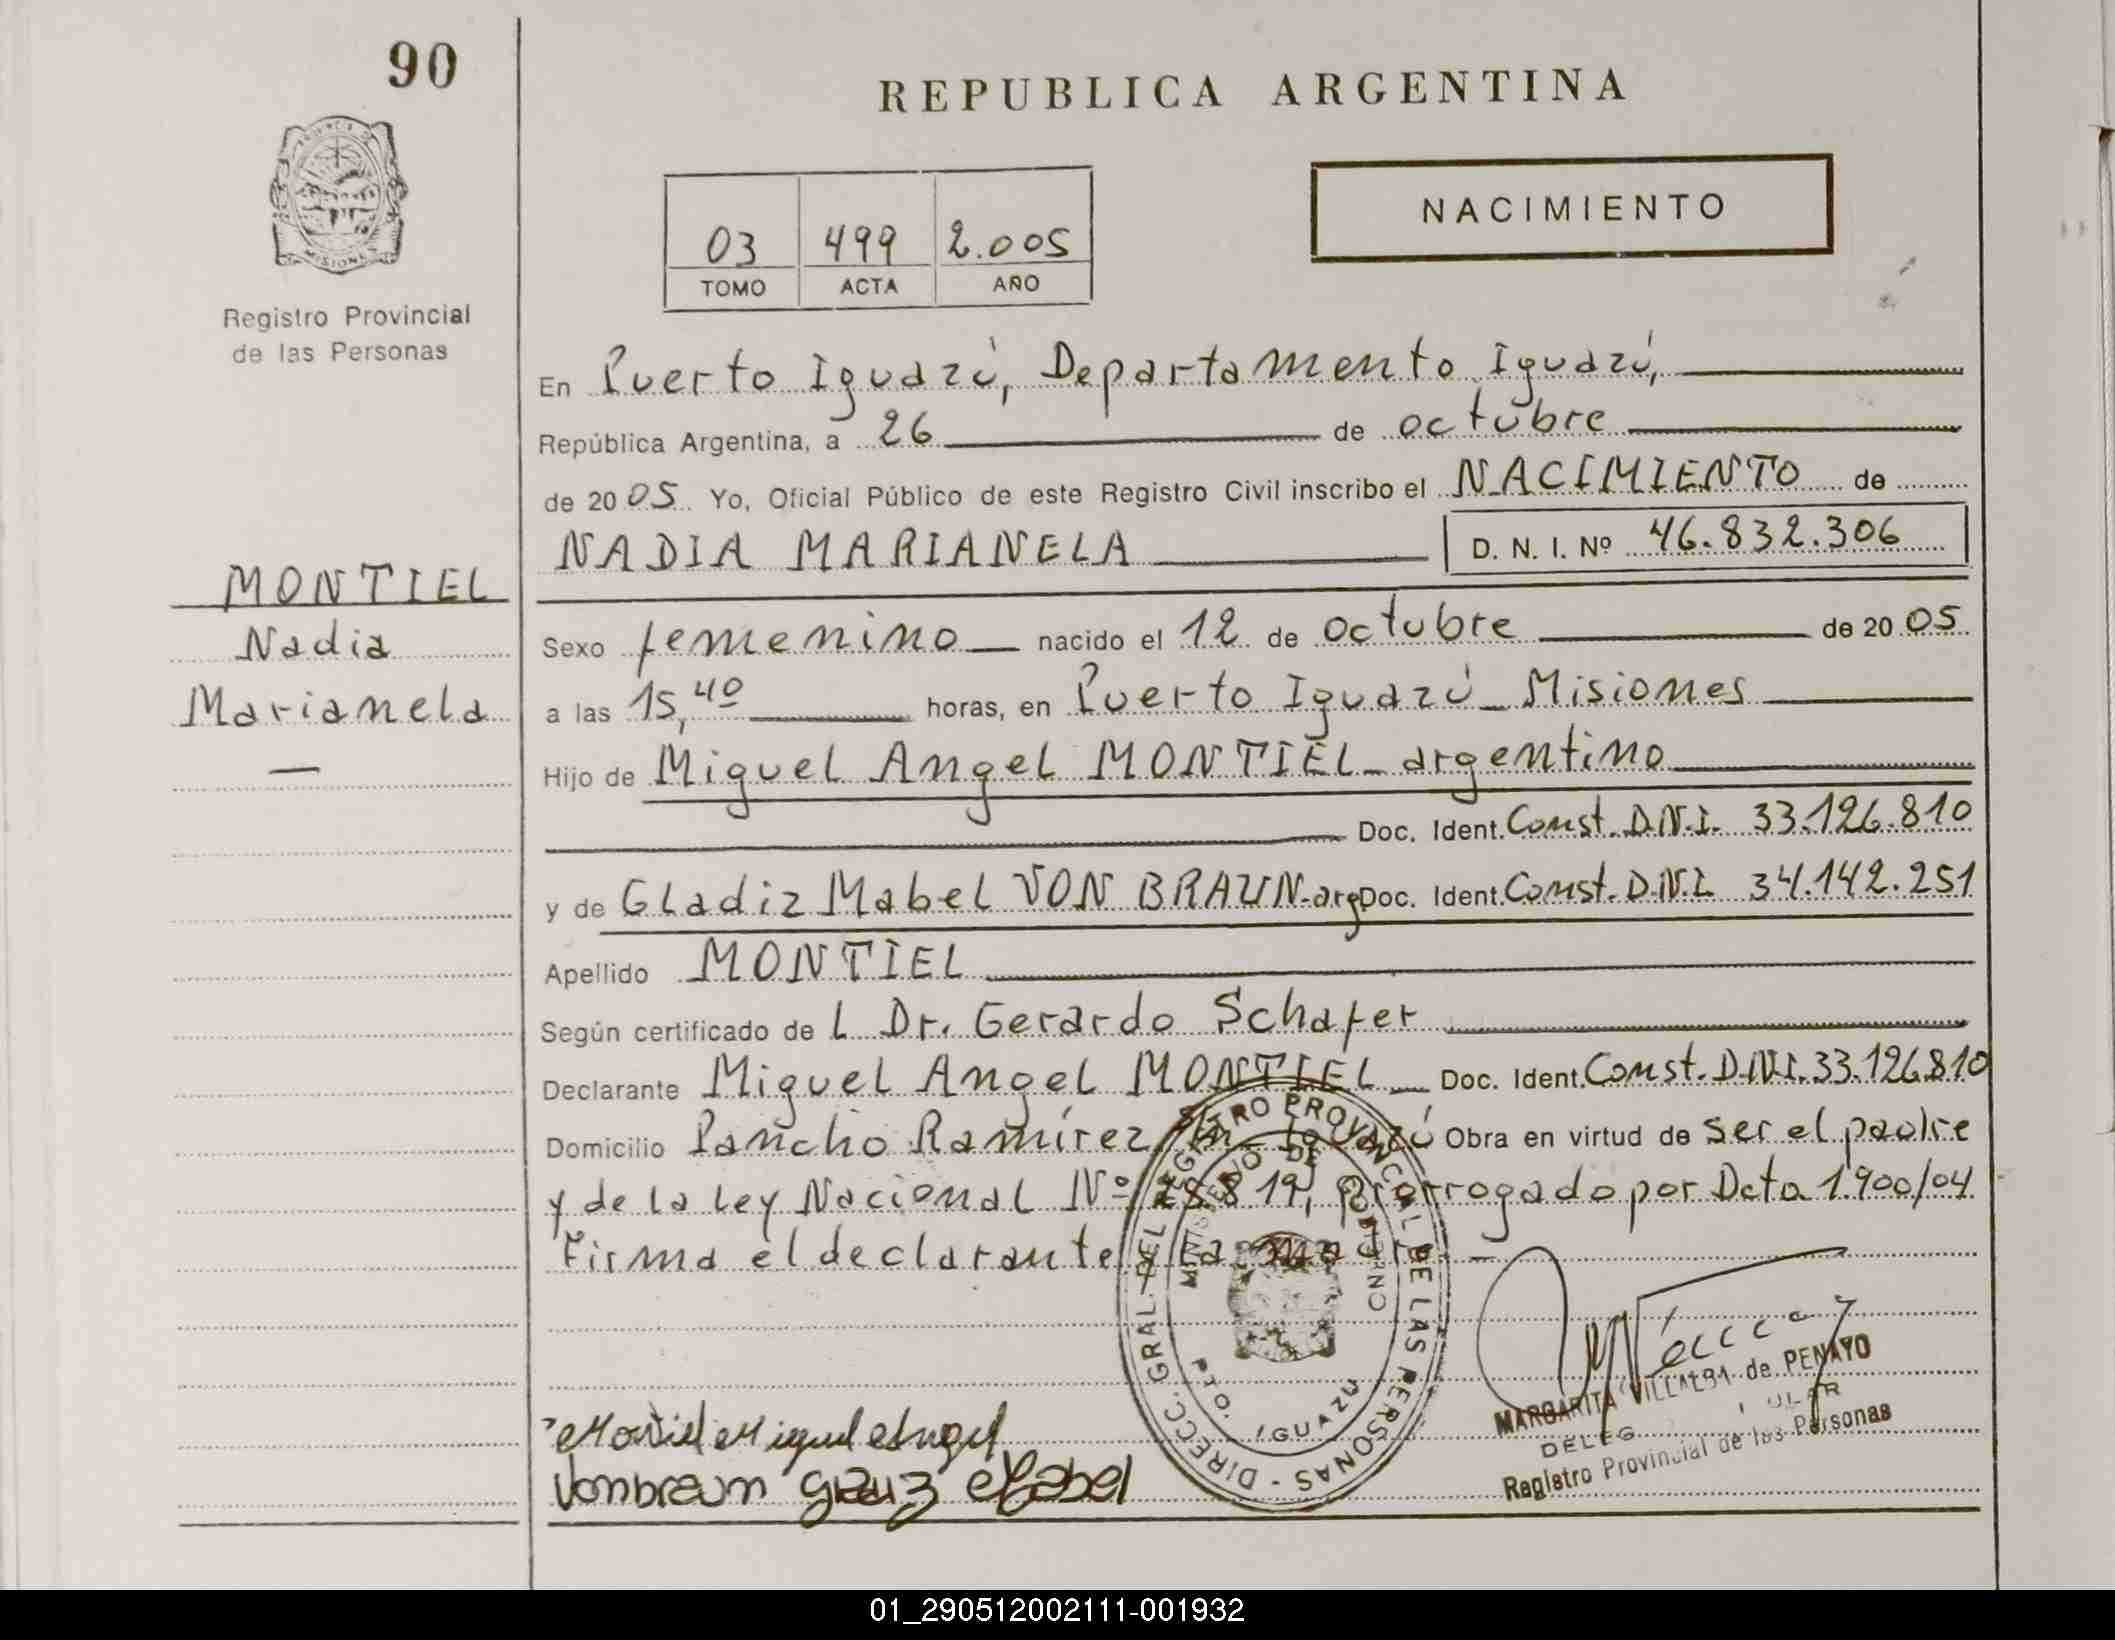 90
REPUBLICA ARGENTINA
PROVINCIA DE
MISIONES
Registro Provincial
de las Personas
03 499 2.005
TOMO ACTA AÑO
NACIMIENTO
En Puerto Iguazú, Departamento Iguazú,
República Argentina, a 26 de octubre
de 2005 Yo, Oficial Público de este Registro Civil inscribo el NACIMIENTO de
NADIA MARIANELA D. N. I. Nº 46.832.306
MONTIEL
Nadia
Marianela
Sexo femenino nacido el 12 de octubre de 2005
a las 15,40 horas, en Puerto Iguazú - Misiones
Hijo de Miguel Angel MONTIEL - argentino
Doc. Ident. Const. D.N.I. 33.126.810
y de Gladiz Mabel VON BRAUN - arg Doc. Ident. Const. D.N.I. 34.142.251
Apellido MONTIEL
Según certificado de L Dr. Gerardo Schafer
Declarante Miguel Angel MONTIEL Doc. Ident. Const. D.N.I. 33.126.810
Domicilio Pancho Ramírez Iguazú Obra en virtud de ser el padre
y de la ley Nacional Nº 25.819, prorrogado por Dcto 1.900/04
Firma el declarante y la madre -
DIRECC. GRAL. DEL REGISTRO PROVINCIAL DE LAS PERSONAS -
MINISTERIO DE GOBIERNO
PTO. IGUAZU
MARGARITA VILLALBA de PENAYO
Registro Provincial de las Personas
Montiel Miguel Angel
Vonbraun Gladiz Mabel
01_290512002111-001932